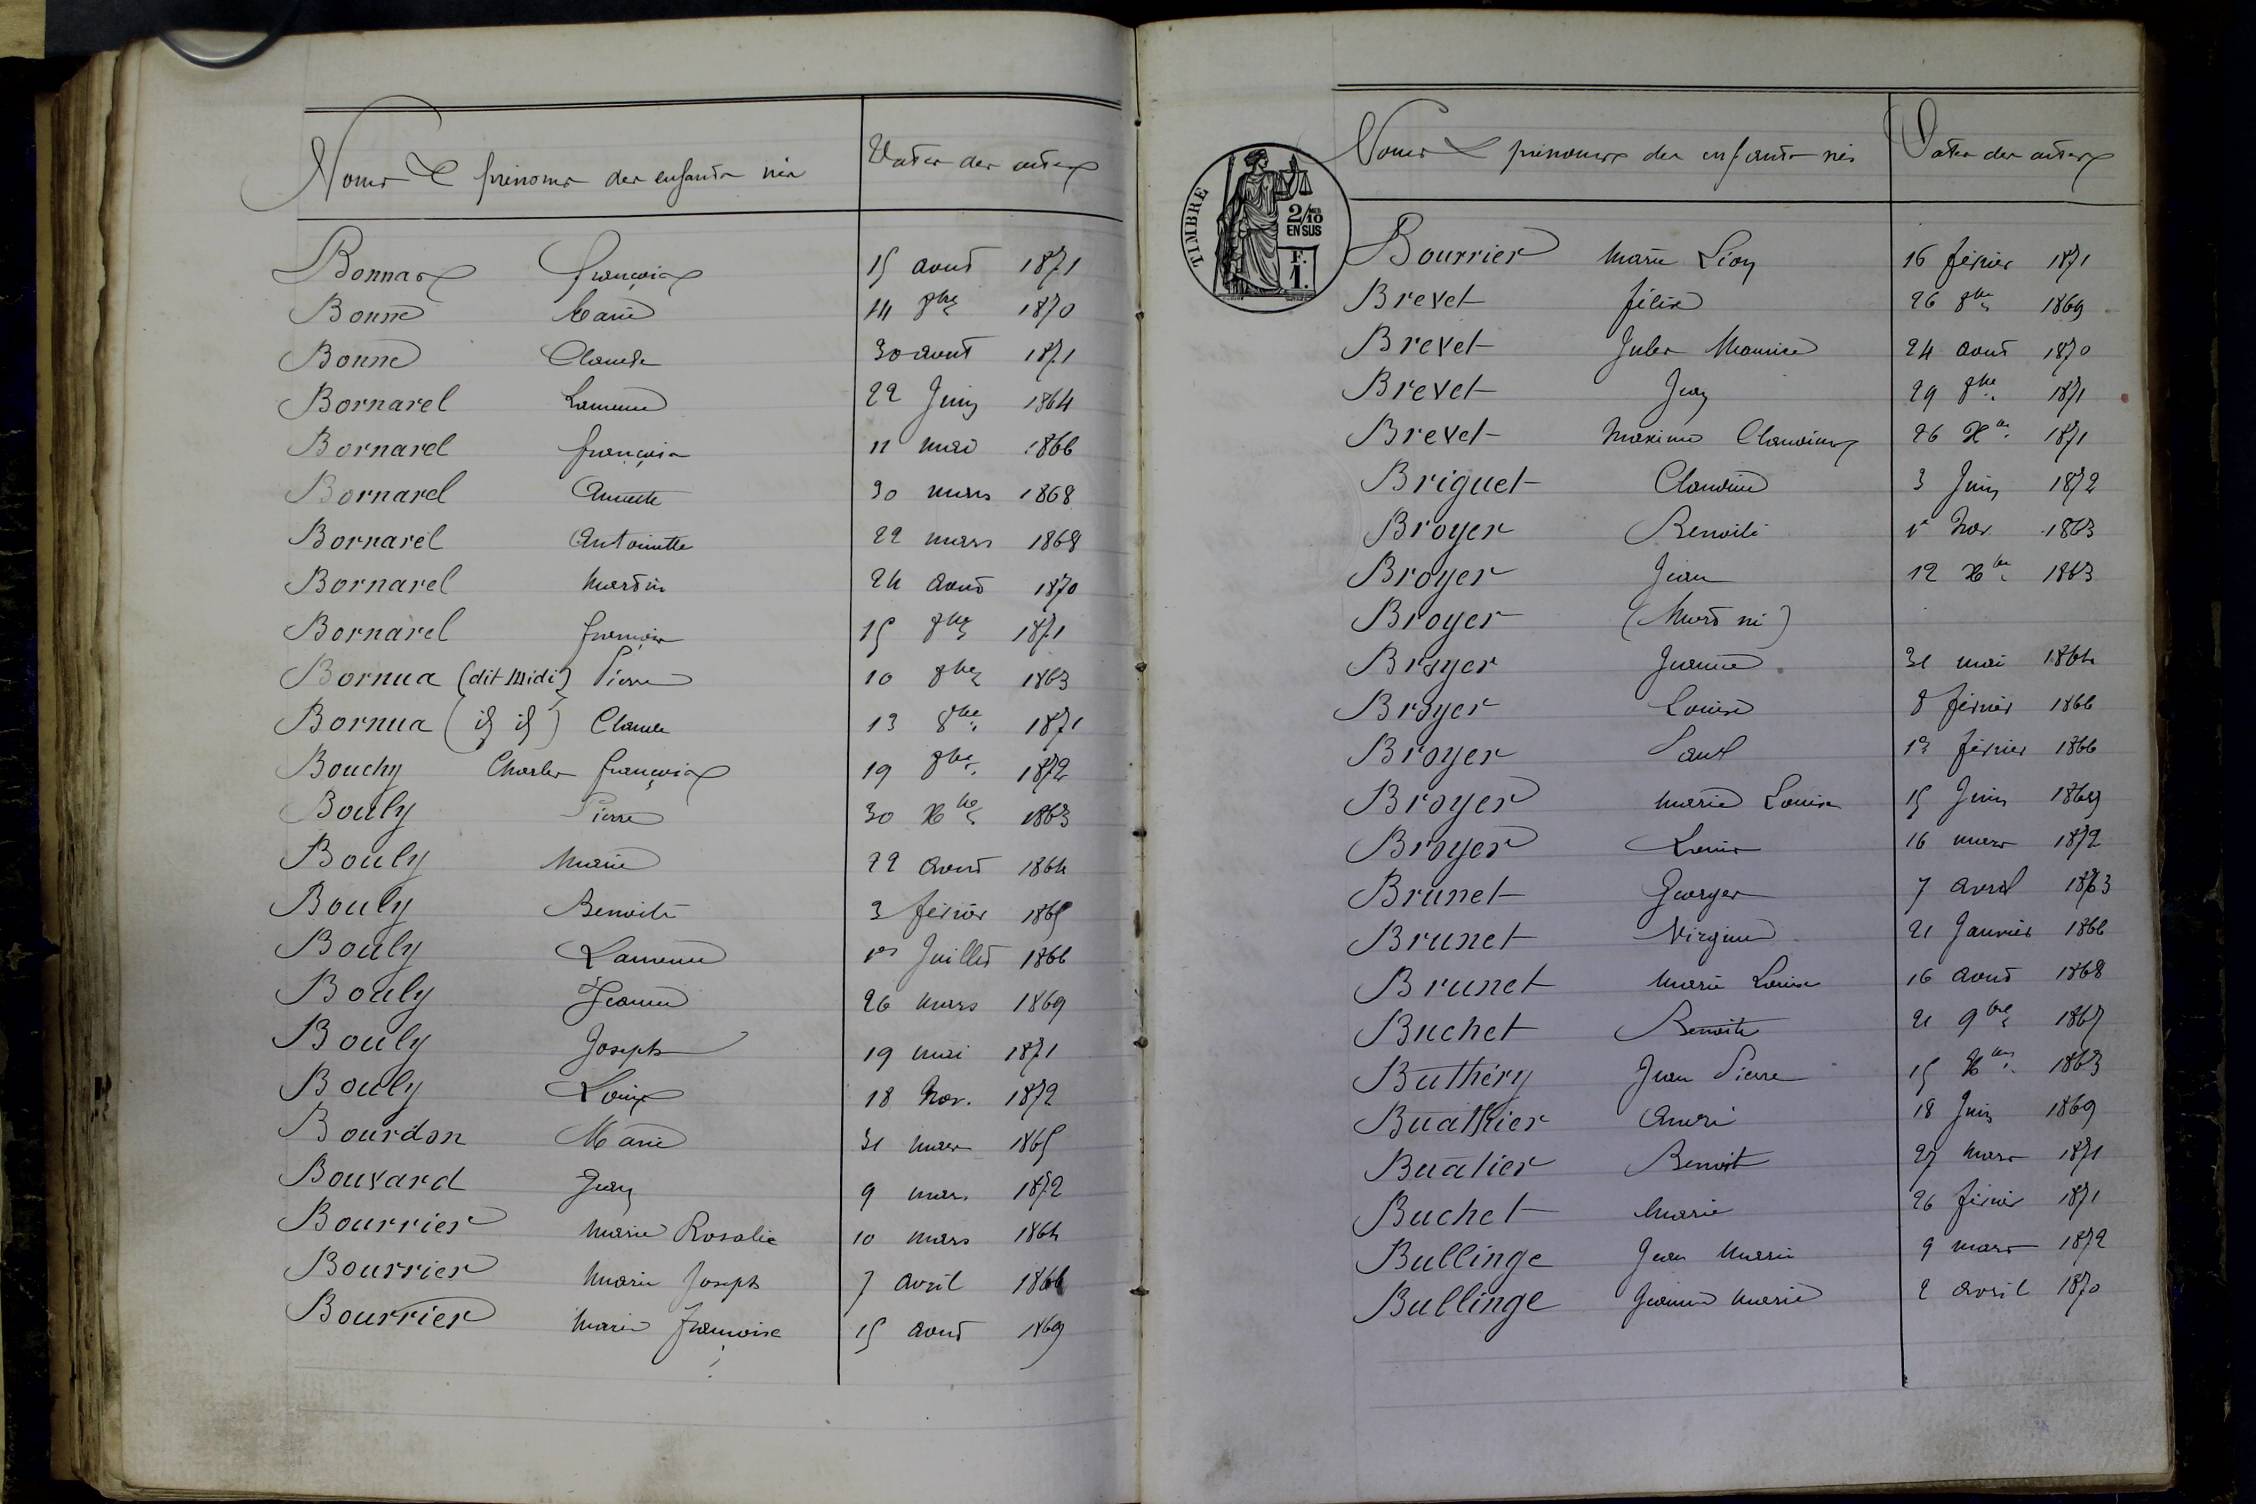 Noms & prénoms des enfants nés Dates des actes
Bonnas François 15 aout 1871
Bonne Marie 14 8bre 1870
Bonne Claude 30 aout 1871
Bornarel Laurence 22 Juin 1864
Bornarel françois 11 mai 1866
Bornarel Annette 30 mars 1868
Bornarel Antoinette 22 mars 1868
Bornarel Martin 24 aout 1870
Bornarel françois 15 9bre 1871
Bornua (dit Midi) Pierre 10 8bre 1863
Bornua (id id) Claude 13 8bre 1871
Bouchy Charles françois 19 8bre 1872
Bouly Pierre 30 Xbre 1863
Bouly Marie 22 aout 1864
Bouly Benoite 3 février 1865
Bouly Laurence 1er Juillet 1866
Bouly Jeanne 26 mars 1869
Bouly Joseph 19 mai 1871
Bouly Louis 18 Nov. 1872
Bourdon Marie 31 mars 1865
Bouvard Jean 9 mars 1872
Bourrier Marie Rosalie 10 mars 1864
Bourrier Marie Joseph 7 avril 1866
Bourrier Marie françoise 15 aout 1869
TIMBRE
2/10 EN SUS
F. 1.
Noms & prénoms des enfants nés Dates des actes
Bourrier Marie Léon 16 février 1871
Brevet félix 26 8bre 1869
Brevet Jules Maurice 24 aout 1870
Brevet Jean 29 8bre 1871
Brevet Maxime Claudius 26 Xbre 1871
Briguet Claudine 3 Juin 1872
Broyer Benoite 1er Nov. 1863
Broyer Jean 12 Xbre 1863
Broyer (Mort né)
Broyer Jeanne 31 mai 1864
Broyer Louise 8 février 1866
Broyer Paul 13 février 1866
Broyer Marie Louise 15 Juin 1869
Broyer Louis 16 mars 1872
Brunet Georges 7 avril 1863
Brunet Virginie 21 Janvier 1866
Brunet Marie Louise 16 aout 1868
Buchet Benoite 21 9bre 1867
Buthéry Jean Pierre 15 Xbre 1863
Buathier André 18 Juin 1869
Buatier Benoit 27 Mars 1871
Buchet Marie 26 février 1871
Bullinge Jean Marie 9 mars 1872
Bullinge Jeanne Marie 2 avril 1870